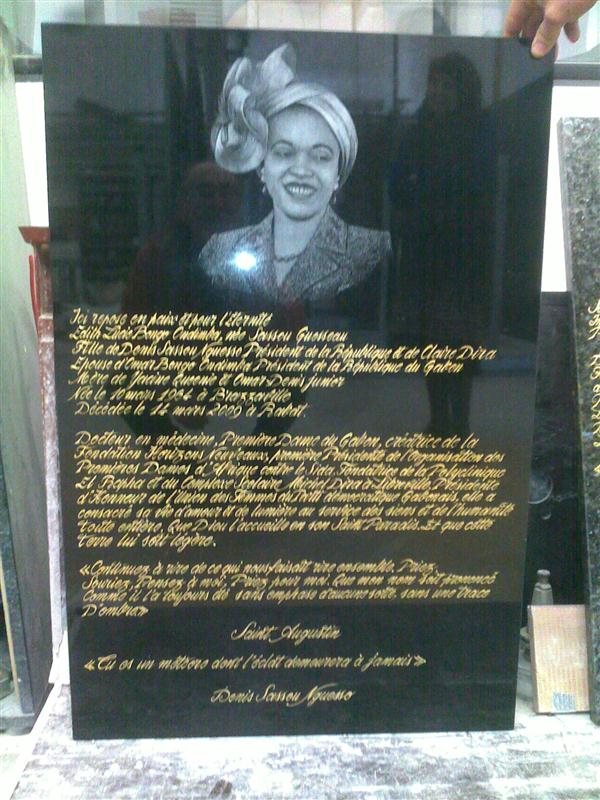 Ici repose en paix et pour l'Eternité
Edith Lucie Bongo Ondimba, née Sassou Guesseau
Fille de Denis Sassou Nguesso Président de la République et de Claire Dira
Epouse d'Omar Bongo Ondimba Président de la République du Gabon
Mère de Yacine Queenie et Omar Denis junior
Née le 10 mars 1964 à Brazzaville
Décédée le 14 mars 2009 à Rabat.
Docteur en médecine, Première Dame du Gabon, créatrice de la
Fondation Horizons Nouveaux, première Présidente de l'organisation des
Premières Dames d'Afrique contre le Sida, Fondatrice de la Polyclinique
El Rapha et du Complexe Scolaire Michel Dira à Libreville, Présidente
d'Honneur de l'Union des Femmes du Parti démocratique Gabonais, elle a
consacré sa vie d'amour et de lumière au service des siens et de l'humanité
toute entière. Que Dieu l'accueille en son Saint Paradis. Et que cette
terre lui soit légère.
«Continuez à rire de ce qui nous faisait rire ensemble. Priez.
Souriez, Pensez à moi, Priez pour moi. Que mon nom Soit prononcé
Comme il l'a toujours été sans emphase d'aucune sorte, sans une trace
D'ombre»
Saint Augustin
«Tu es un météore dont l'éclat demeurera à jamais»
Denis Sassou Nguesso